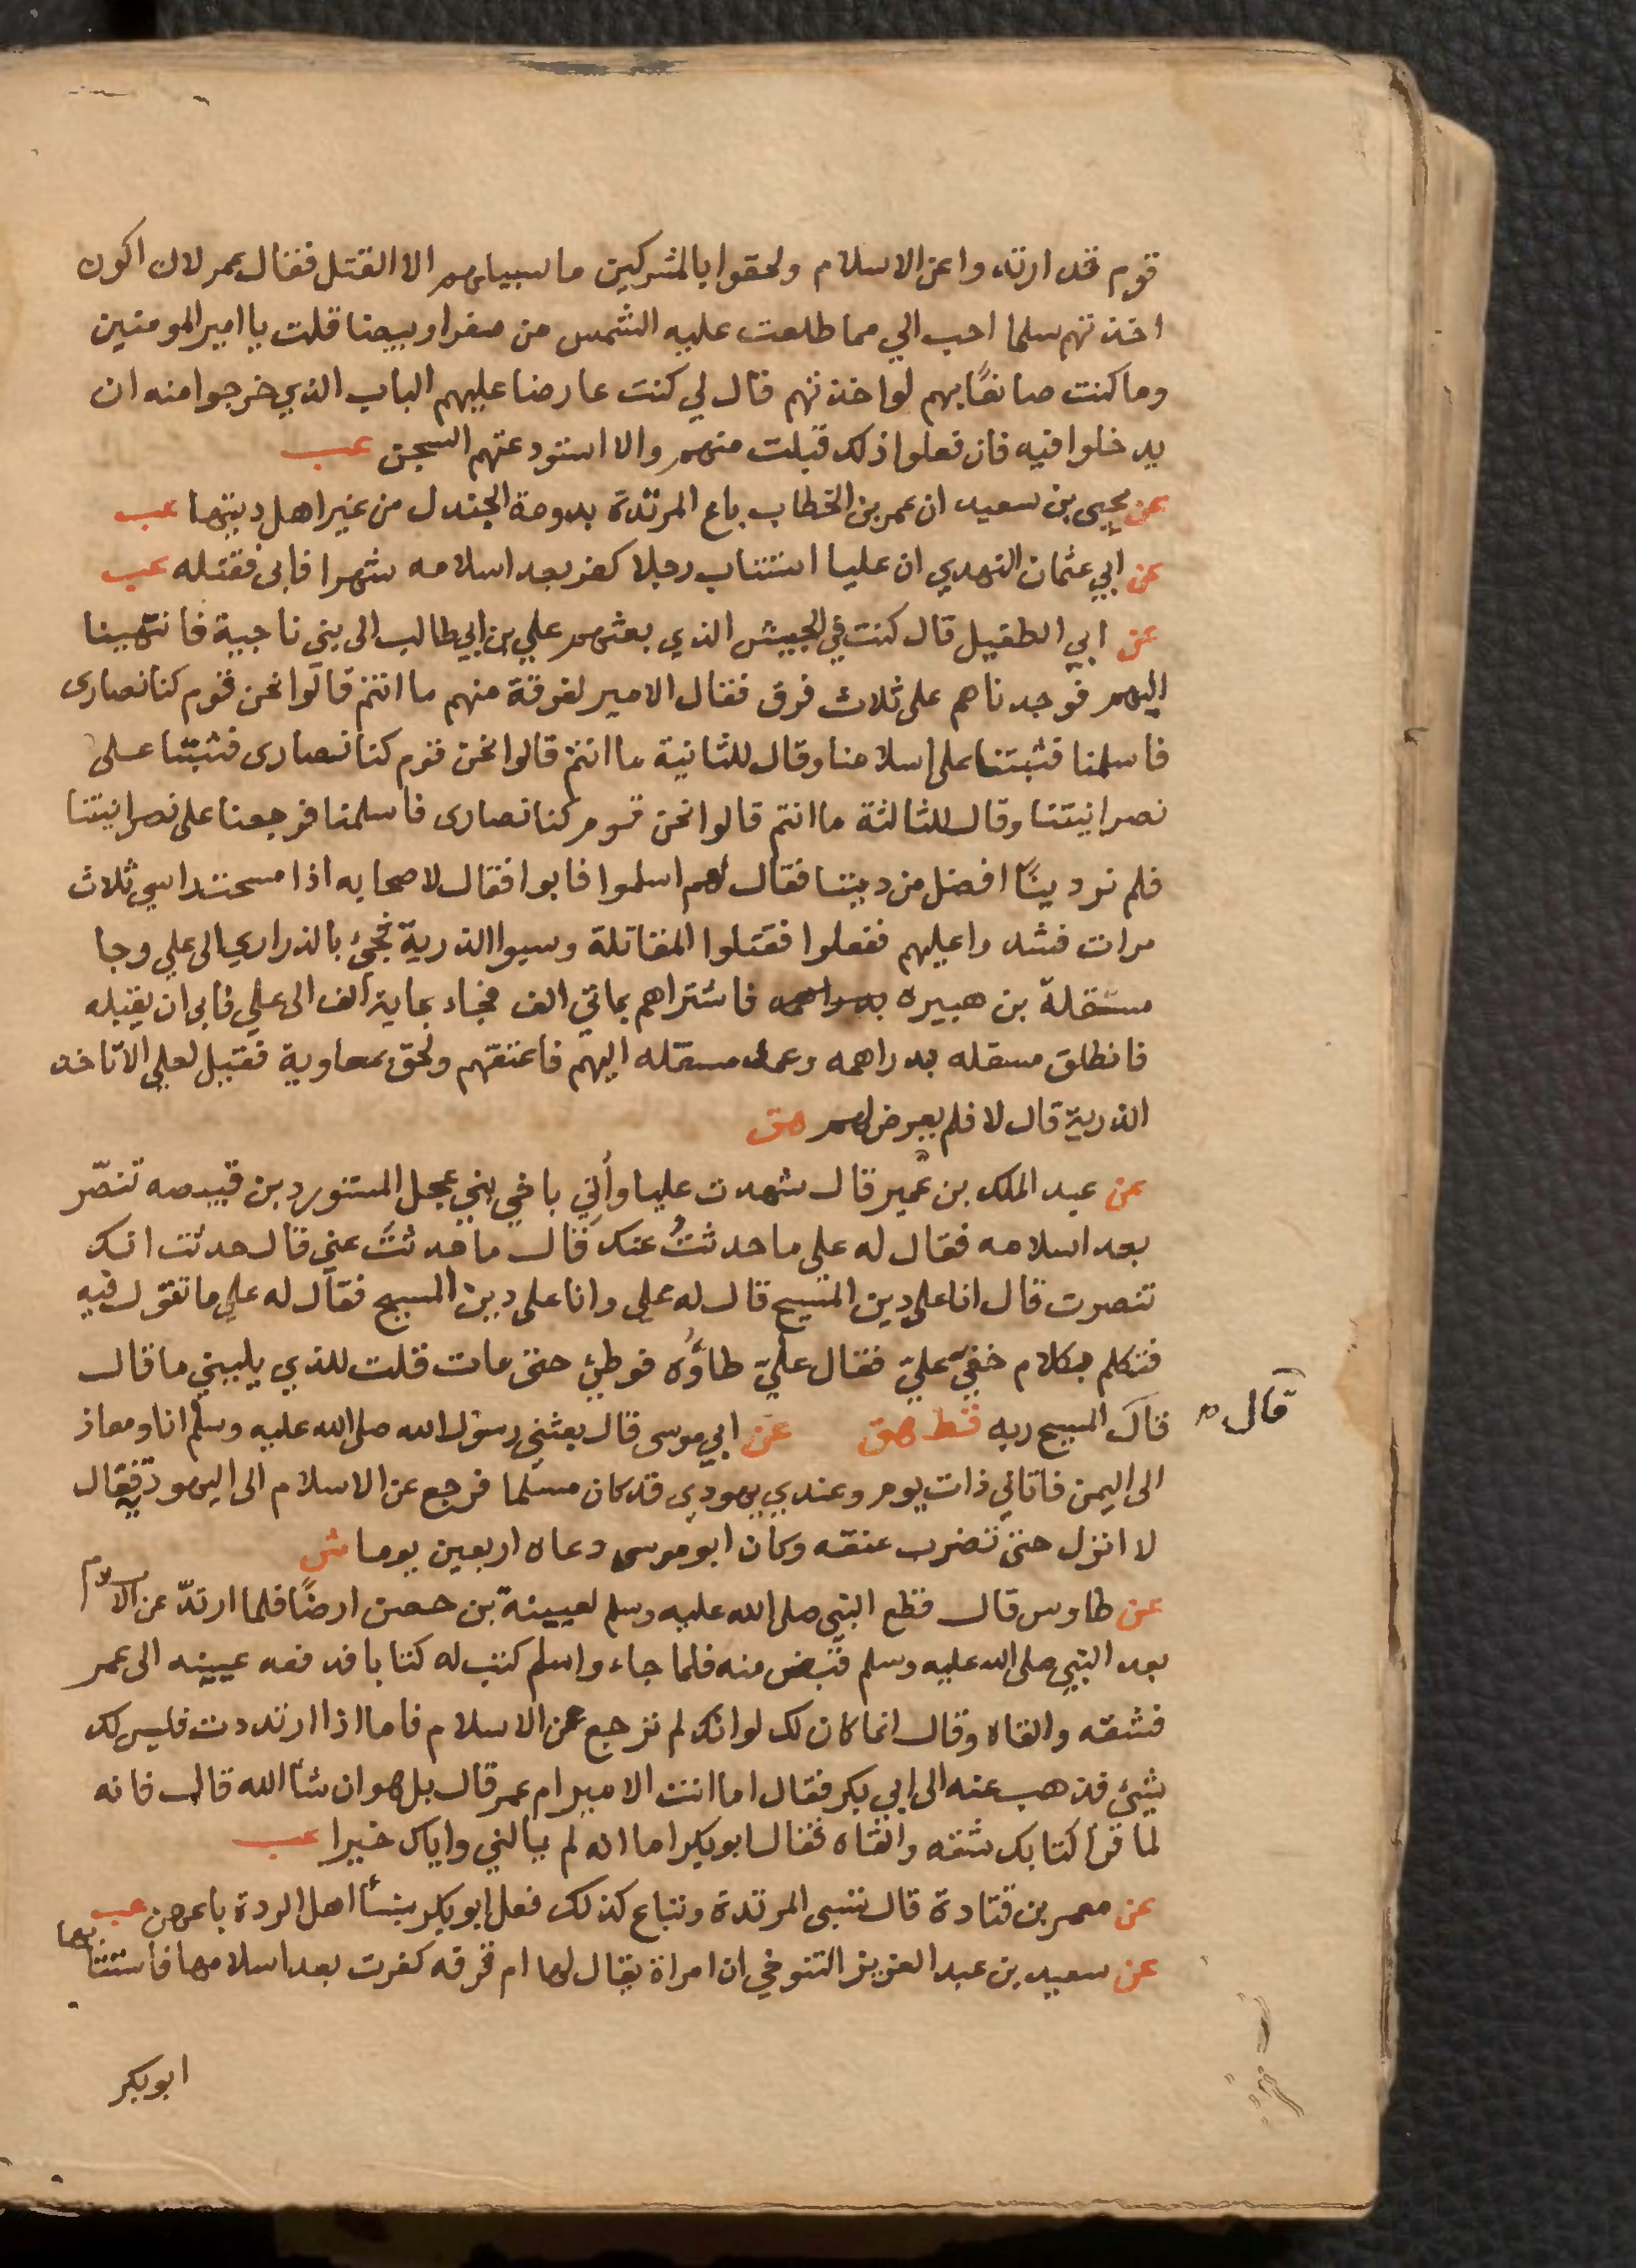 قوم قد ارتدوا عن الاسلام ولحقوا بالمشركين ما سبيلهم الا القتل فقال عمر لان اكون
اخذتهم سلما احب الي مما طلعت عليه الشمس من صفرا وبيضا قلت يا امير المومنين
وما كنت صانعًا بهم لو اخذتهم قال لي كنت عارضا عليهم الباب الذي خرجوا منه ان
يدخلوا فيه فان فعلوا ذلك قبلت منهم والا استودعتهم السجن عب
عن يحيى بن سعيد ان عمر بن الخطاب باع المرتدة بدومة الجندل من غير اهل دينها عب
عن ابي عثمان النهدي ان عليا استتاب رجلا كفر بعد اسلامه شهرا فابى فقتله عب
عن ابي الطفيل قال كنت في الجيش الذي بعثهم علي بن ابي طالب الى بني ناجية فانتهينا
اليهم فوجدناهم على ثلاث فرق فقال الامير لفرقة منهم ما انتم قالوا نحن قوم كنا نصارى
فاسلمنا فثبتنا على اسلامنا وقال للثانية ما انتم قالوا نحن قوم كنا نصارى فثبتنا على
نصرانيتنا وقال للثالثة ما انتم قالوا نحن قوم كنا نصارى فاسلمنا فرجعنا على نصرانيتنا
فلم نر دينًا افضل من ديننا فقال لهم اسلموا فابوا فقال لاصحابه اذا مسحت راسي ثلاث
مرات فشدوا عليهم ففعلوا فقتلوا المقاتلة وسبوا الذرية فجئ بالذراري الى علي وجا
مسقلة بن هبيره بدراهمه فاشتراهم بماتي الف فجاء بماية الف الى علي فابى ان يقبله
فانطلق مسقله بدراهمه وعمد مسقله اليهم فاعتقهم ولحق بمعاوية فقيل لعلي الا تاخذ
الذرية قال لا فلم يعرض لهم هق
عن عبد الملك بن عمير قال شهدت عليا وأتي باخي بني عجل المستورد بن قبيصه تنصّر
بعد اسلامه فقال له على ما حدثتُ عنك قال ما حدثتَ عني قال حدثت انك
تنصرت قال انا على دين المسيح قال له علي وانا على دين المسيح فقال له علي ما تقول فيه
فتكلم بكلام خفي عليّ فقال عليّ طاؤُه فوطئ حتى مات قلت للذي يليني ما قال
قال المسيح ربه قط هق عن ابي موسى قال بعثني رسول الله صلى الله عليه وسلم انا ومعاذ
قال
الى اليمن فاتاني ذات يوم وعندي يهودي قد كان مسلما فرجع عن الاسلام الى اليهودية فقال
لا انزل حتى تضرب عنقه وكان ابو موسى دعاه اربعين يوما ش
عن طاوس قال قطع النبي صلى الله عليه وسلم لعيينة بن حصن ارضًا فلما ارتدّ عن الاسلام
بعد النبي صلى الله عليه وسلم قبض منه فلما جاء واسلم كتب له كتابا فدفعه عيينه الى عمر
فشقه والقاه وقال انما كان لك لو انك لم ترجع عن الاسلام فاما اذا ارتددت فليس لك
شيئ فذهب عنه الى ابي بكر فقال اما انت الامير ام عمر قال بل هو ان شا الله قال فانه
لما قرا كتابك شقه والقاه فقال ابو بكر اما انه لم يالني واياك خيرا عب
عن معمر بن قتادة قال تسبى المرتدة وتباع كذلك فعل ابو بكر بنسأ اهل الردة باعهن عب
عن سعيد بن عبد العزيز التنوخي ان امراة يقال لها ام قرفه كفرت بعد اسلامها فاستتابها
ابو بكر